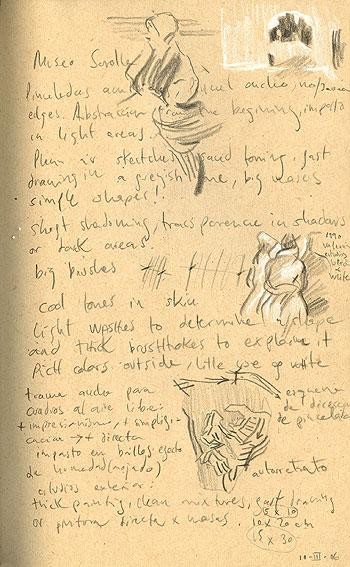 Museo Sorolla
Pinceladas pincel ancho, no
edges. Abstraction from the beginning, impasto
in light areas.
Plein air sketches: sand toning, fast
drawing in a greyish tone, big masses
simple shapes!
Short shadowing, transparence in shadows
or dark areas
big brushes
1890
cool tones in skin
light washes to determine shape
and thick brusthokes to explain it
Rich colors outside, little use of white
trama ancha para
cuadros al aire libre:
+ impresionismo, + simplifi-
cación → + directo
esquema
de dirección
de pincelada
impasto en brillos efecto
de humedad (mojado)
autorretrato
estudios exterior:
thick painting, clean mixtures, fast drawing
or pintura directa x masas.
5 x 10
10 x 20 cm
15 x 30
10-III-06